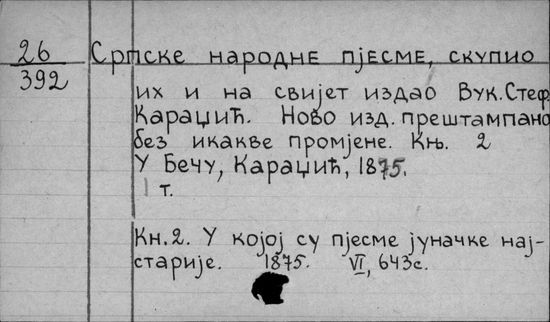 26
392
Српске народне пјесме, скупио
их и на свијет издао Вук. Стеф.
Караџић. Ново изд. прештампано
без икакве промјене. Књ. 2
У Бечу, Караџић, 1875.
1 т.
Кн. 2. У којој су пјесме јуначке нај-
старије. 1875. VI, 643с.